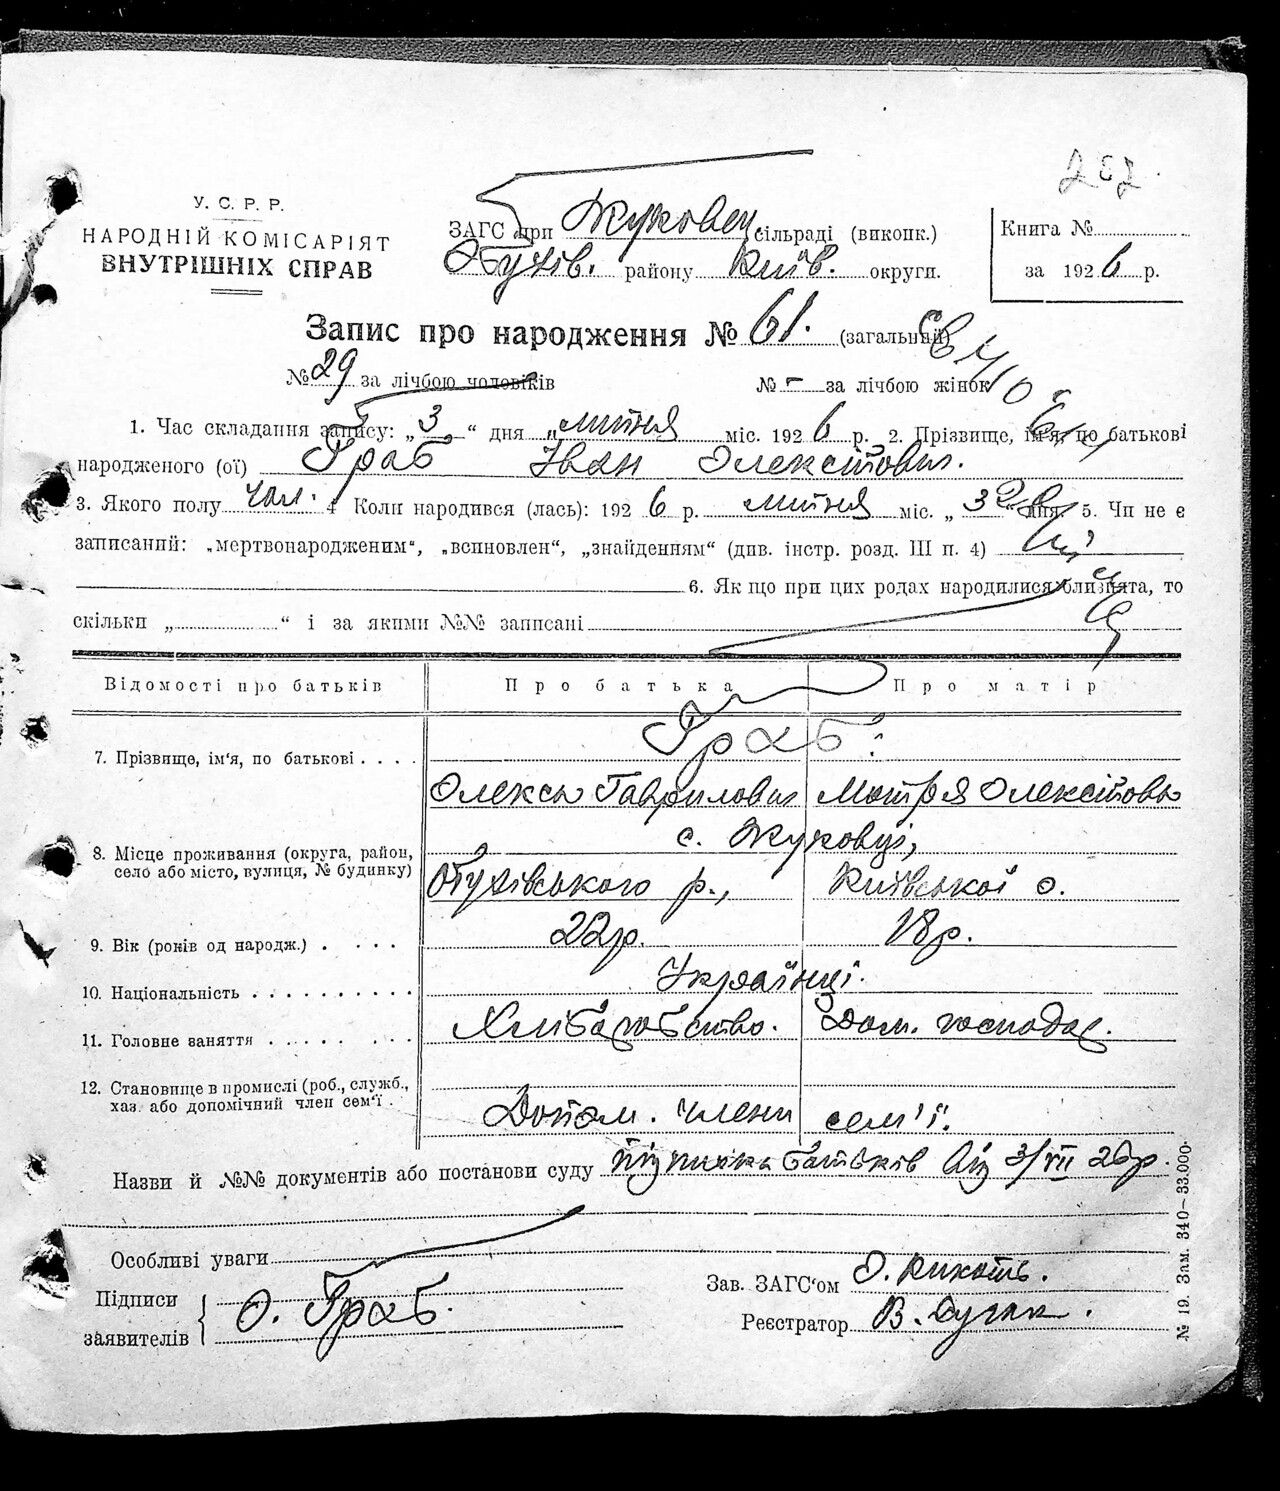 У. С. Р. Р.
НАРОДНІЙ КОМІСАРІЯТ
ВНУТРІШНІХ СПРАВ
ЗАГС при Жуковец. сільраді (викопк.)
Обухів. району Київ. округи.
Книга №
за 1926 р.
Запис про народження № 61. (загальний)
№ 29 за лічбою чоловіків № - за лічбою жінок
1. Час складання запису: „3“ дня „липня міс. 1926 р. 2. Прізвище, ім'я, по батькові
народженого (ої) Граб Іван Олексійович.
3. Якого полу чол. 4 Коли народився (лась): 1926 р. липня міс. „3 дня. 5. Чи не є
записаний: „мертвонародженим“, „всиновлен“, „знайденням“ (див. інстр. розд. III п. 4)
6. Як що при цих родах народилися близнята, то
скільки „ “ і за якими №№ записані
Відомості про батьків Про батька Про матір
7. Прізвище, ім'я, по батькові . . . . Граб:
Олекса Гаврилович Мотря Олексіївна
8. Місце проживання (округа, район,
село або місто, вулиця, № будинку)
с. Жуковці,
Обухівського р., Київської о.
9. Вік (років од народж.) . . . . 22 р. 18 р.
10. Національність . . . . . . . . . . Українці.
11. Головне заняття . . . . . . . . Хліборобство. Дом. господар.
12. Становище в промислі (роб., служб.,
хаз. або допомічний член сем'ї .
Допом. члени сем'ї.
Назви й №№ документів або постанови суду підписка батьків від 3/VII 26 р.
Особливі уваги
Підписи
заявителів
О. Граб.
Зав. ЗАГС'ом
Реєстратор
№ 19. Зам. 340—33.000.